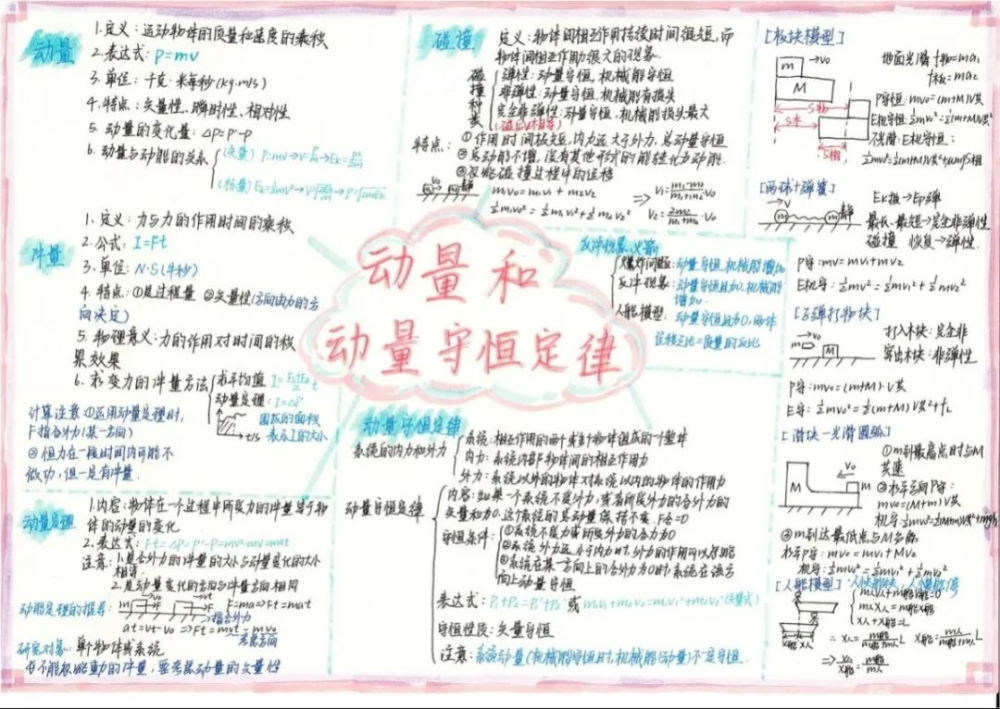 动量
1.定义：运动物体的质量和速度的乘积
2.表达式：P=mv
3.单位：千克·米每秒(kg·m/s)
4.特点：矢量性、瞬时性、相对性
5.动量的变化量 ΔP=P'-P
6.动量与动能的关系
冲量
1.定义：力与力的作用时间的乘积
2.公式：I=Ft
3.单位：N·S(牛秒)
4.特点：①是过程量 ②矢量性(方向由力的方
向决定)
5.物理意义：力的作用对时间的积
累效果
6.求变力的冲量方法
求平均值
动量定理：I=ΔP
图像的面积
表示I的大小
计算注意①运用动量定理时，
F指合外力(某一方向)
②恒力在一段时间内可能不
做功，但一定有冲量
动量定理
1.内容：物体在一个过程中所受力的冲量等于物
体的动量的变化
2.表达式：Ft=ΔP=P'-P=mv'-mv
注意：1.是合外力的冲量的大小与动量变化的大小
相等
2.是动量变化的方向与冲量方向相同
F=ma⇒Ft=mat
指合外力
研究对象：单个物体或系统
碰撞
定义：物体间相互作用持续时间很短，而
物体间相互作用力很大的现象
碰撞种类
弹性：动量守恒，机械能守恒
非弹性：动量守恒，机械能有损失
完全非弹性：动量守恒，机械能损失最大
特点：①作用时间极短，内力远大于外力，总动量守恒
②总动能不增，没有其他形式的能转化为动能
③忽略碰撞过程中的位移
mv₀=m₁v₁+m₂v₂
动量和
动量守恒定律
反冲现象、火箭
爆炸问题：动量守恒，机械能增加
反冲现象：动量守恒且为0，机械能
增加
人船模型：动量守恒且为0，两体
位移之比=质量的反比
动量守恒定律
系统的内力和外力
系统：相互作用的两个或多个物体组成的一个整体
内力：系统内部物体间的相互作用力
外力：系统以外的物体对系统以内的物体的作用力
动量守恒定律
内容：如果一个系统不受外力，或者所受外力的合外力的
矢量和为0，这个系统的总动量保持不变，F合=0
守恒条件：①系统不受力或所受外力的合力为0
②系统外力远小于内力时，外力的作用可以忽略
③系统在某一方向上的合外力为0时，系统在该方
向上动量守恒
表达式：P₁+P₂=P₁'+P₂' 或 m₁v₁+m₂v₂=m₁v₁'+m₂v₂'(矢量式)
守恒性质：矢量守恒
[板块模型]
m v₀
M
地面光滑
P守恒：mv₀=(m+M)V共
[两球+弹簧]
EK损→EP弹
最长、最短→完全非弹性
碰撞 恢复→弹性
P守：mv=mv₁+mv₂
E机守：½mv²=½mv₁²+½mv₂²
[子弹打物块]
打入木块：完全非
穿出木块：非弹性
P守：mv₀=(m+M)·V共
[滑块-光滑圆弧]
①m到最高点时与M
共速
②水平方向P守：
mv₀=(M+m)V共
③m到达最低点与M分离
水平P守：mv₀=mv₁+Mv₂
[人船模型]